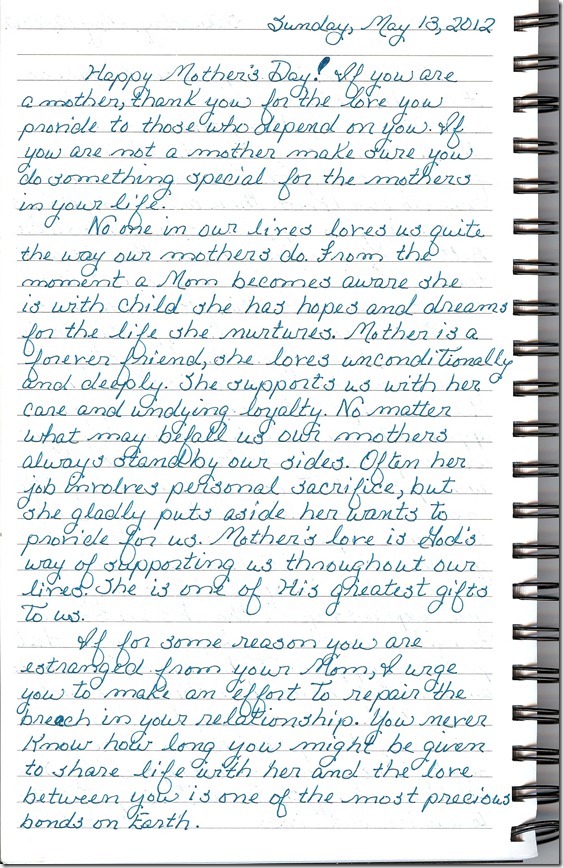 Sunday, May 13, 2012
Happy Mother's Day! If you are
a mother, thank you for the love you
provide to those who depend on you. If
you are not a mother make sure you
do something special for the mothers
in your life.
No one in our lives loves us quite
the way our mothers do. From the
moment a Mom becomes aware she
is with child she has hopes and dreams
for the life she nurtures. Mother is a
forever friend, she loves unconditionally
and deeply. She supports us with her
care and undying loyalty. No matter
what may befall us our mothers
always stand by our sides. Often her
job involves personal sacrifice, but
she gladly puts aside her wants to
provide for us. Mother's love is God's
way of supporting us throughout our
lives. She is one of His greatest gifts
to us.
If for some reason you are
estranged from your Mom, I urge
you to make an effort to repair the
breach in your relationship. You never
know how long you might be given
to share life with her and the love
between you is one of the most precious
bonds on Earth.